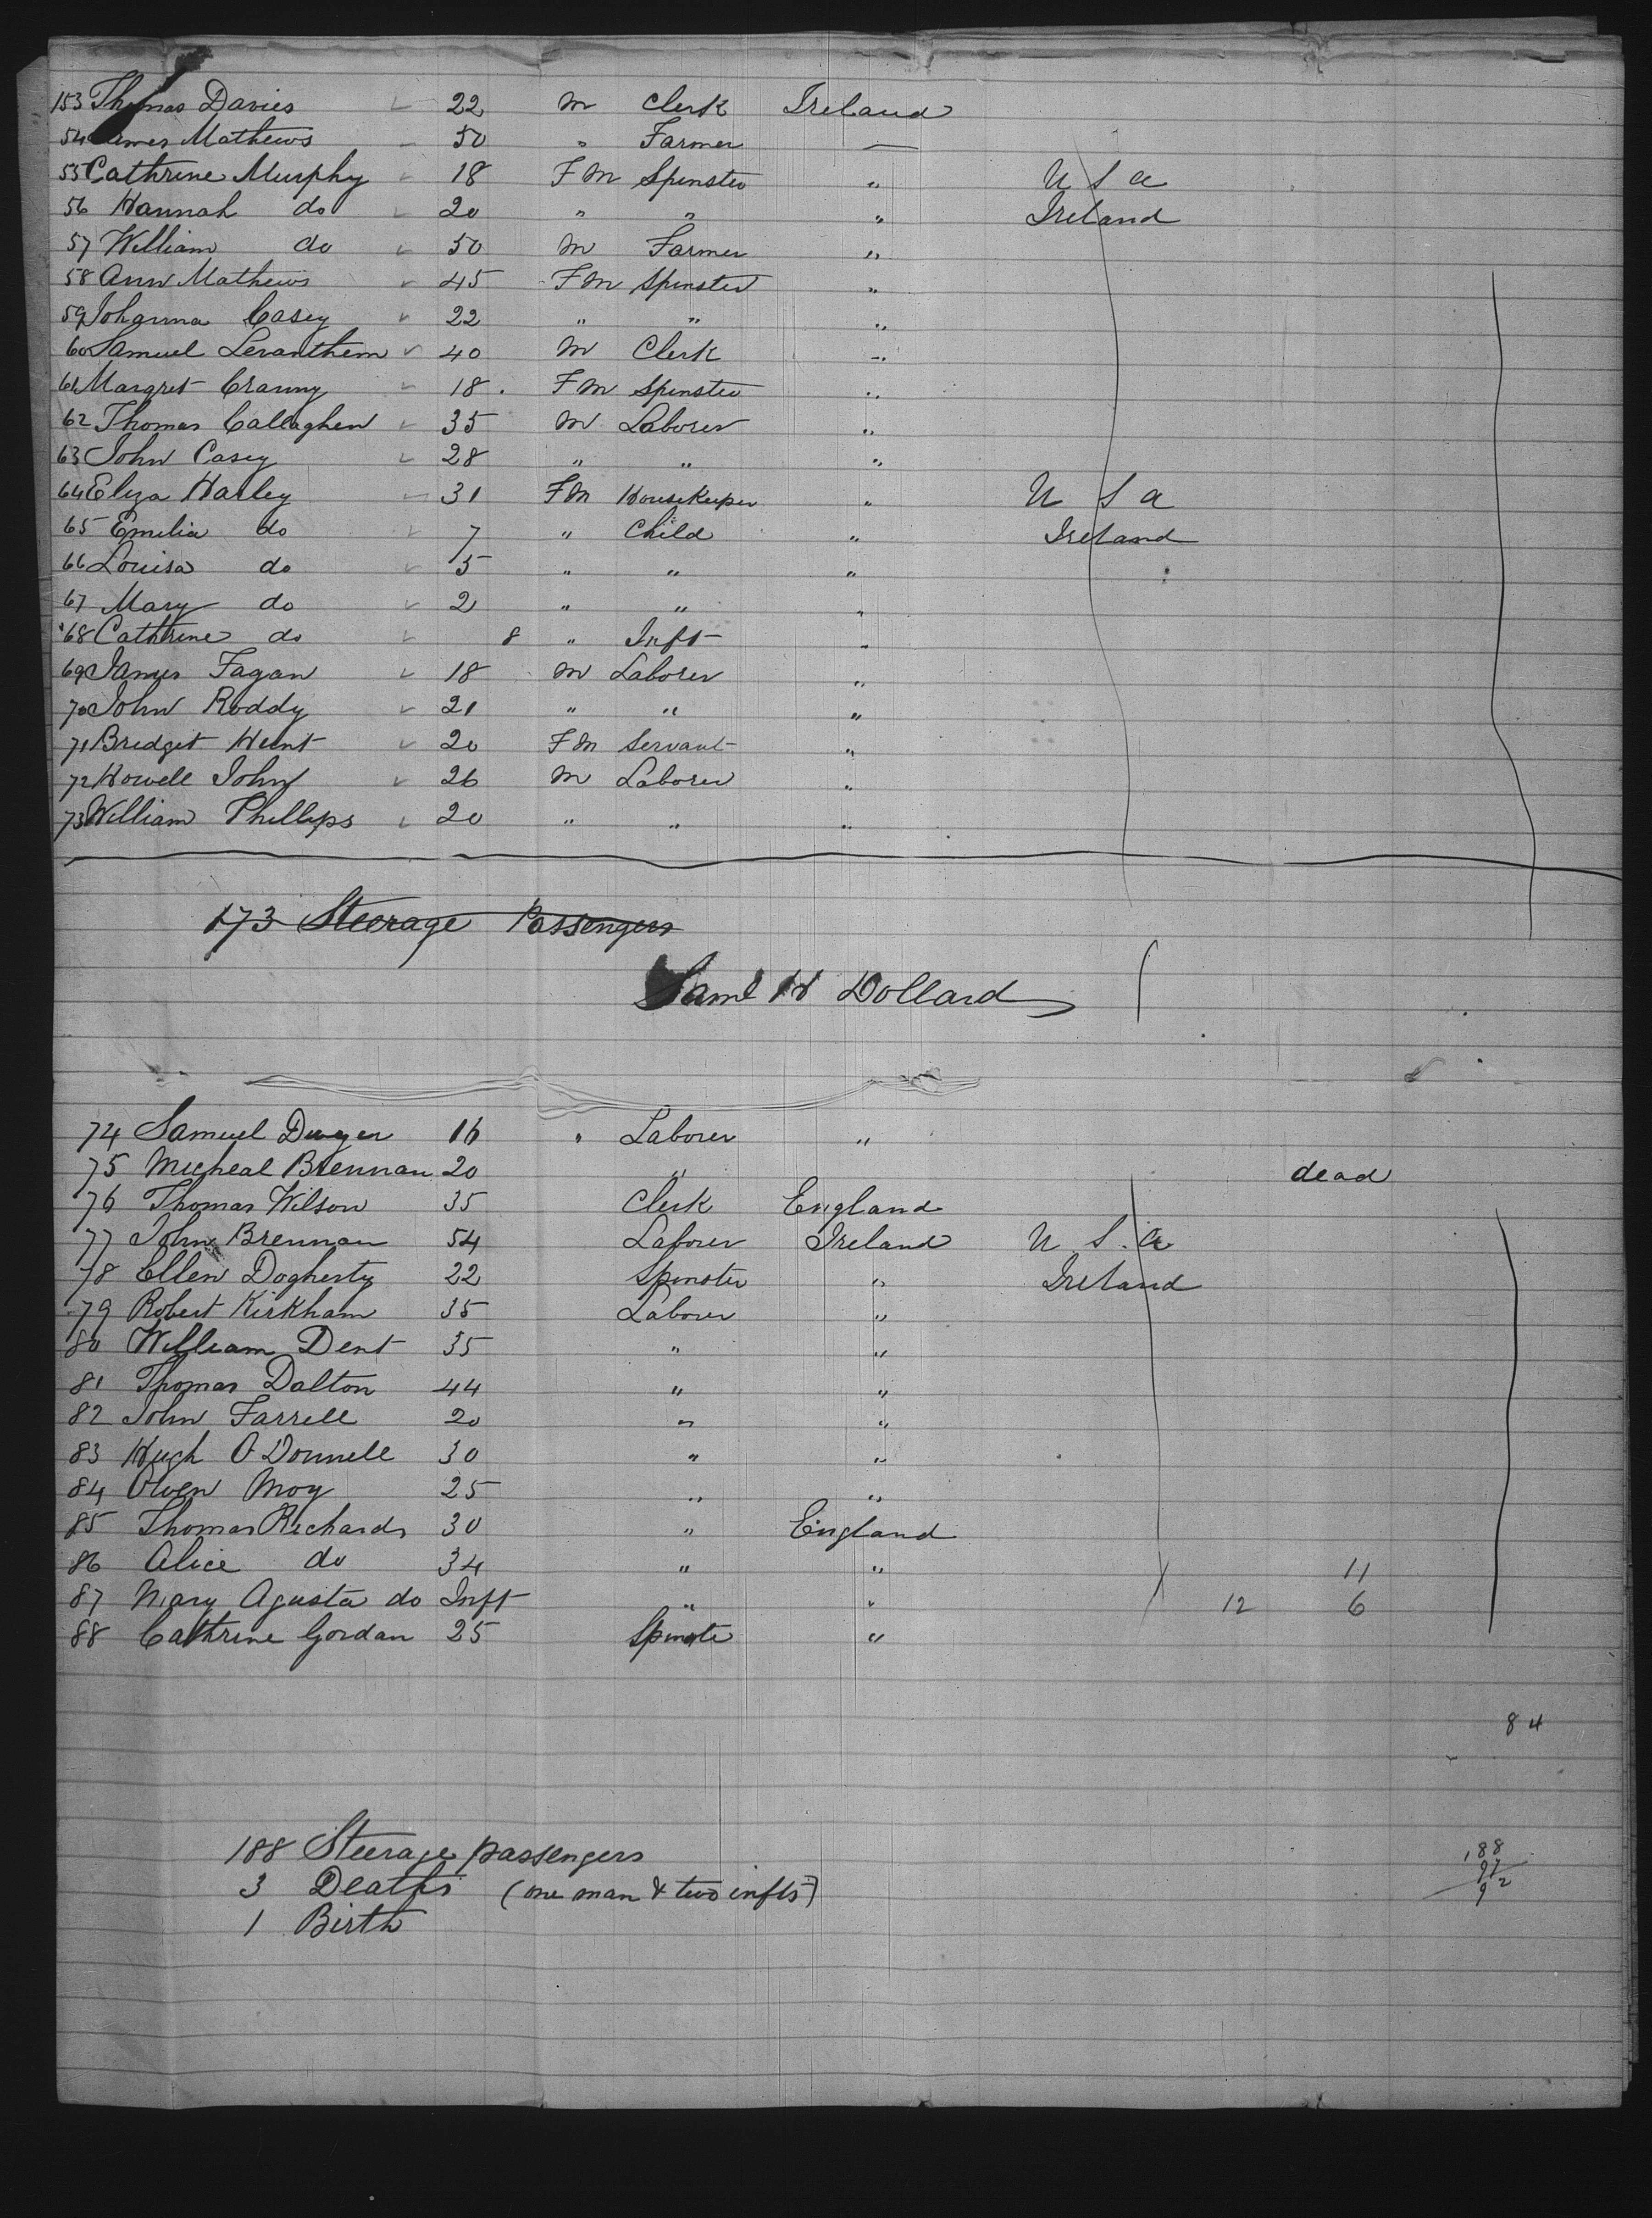 153 Thomas Davies 22 M Clerk Ireland
54 James Mathews 50 " Farmer —
55 Cathrine Murphy 18 F M Spinster " U S A
56 Hannah do 20 " " " Ireland
57 William do 50 M Farmer "
58 Ann Mathews 45 F M Spinster "
59 Johanna Casey 22 " " "
60 Samuel Levanthem 40 M Clerk "
61 Margret Cranny 18 F M Spinster "
62 Thomas Callaghen 35 M Laborer "
63 John Casey 28 " " "
64 Eliza Harley 31 F M Housekeeper " U S A
65 Emilia do 7 " Child " Ireland
66 Louisa do 5 " " "
67 Mary do 2 " " "
68 Cathrine do 8 " Inft "
69 James Fagan 18 M Laborer "
70 John Roddy 21 " " "
71 Bridget Hunt 20 F M Servant "
72 Howell John 26 M Laborer "
73 William Phillips 20 " " "
173 Steerage Passengers
Saml H Dollard
74 Samuel Dwyer 16 " Laborer "
75 Micheal Brennan 20 " dead
76 Thomas Wilson 35 Clerk England
77 John Brennan 54 Laborer Ireland U S. A
78 Ellen Dogherty 22 Spinster " Ireland
79 Robert Kirkham 35 Laborer "
80 William Dent 35 " "
81 Thomas Dalton 44 " "
82 John Farrell 20 " "
83 Hugh O Donnell 30 " "
84 Owen Moy 25 " "
85 Thomas Richards 30 " England
86 Alice do 34 " " 11
87 Mary Agusta do Inft " " 12 6
88 Cathrine Gordan 25 Spinster "
84
188 Steerage passengers 188
3 Deaths (one man & two infts) 92
1 Birth